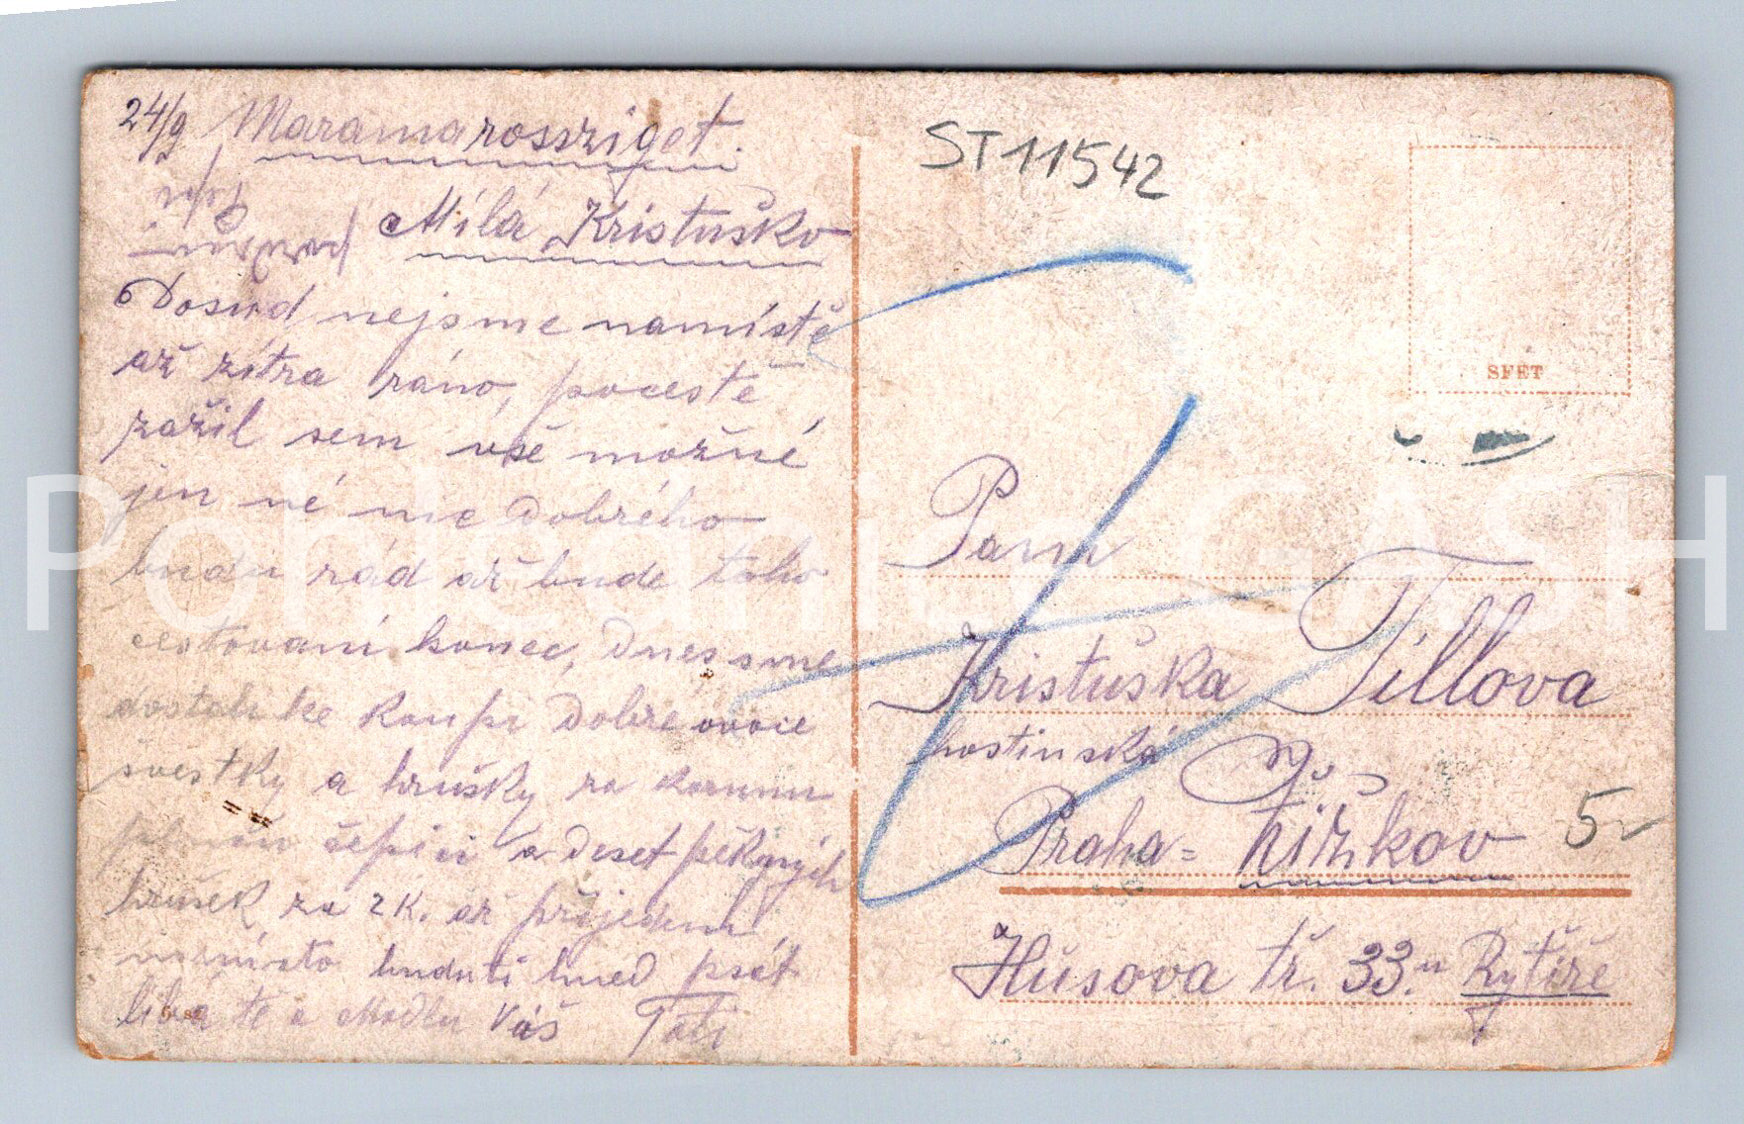 24/9 Maramarossziget.
Milá Kristuško
Dosud nejsme namístě
až zítra ráno, pocestě
zažil sem vše možné
jen né nic dobrého
budu rád až bude toho
cestovaní konec, Dnes sme
dostali ke koupi dobré ovoce
švestky a hrušky za korunu
plnou čepici a deset pěkných
hrušek za 2 K. až přijedem
namísto budu ti hned psát
líba tě a Mádlu Váš Táti
ST 11542
SFÉT
Paní
Kristuška Tillova
hostinská
Praha = Žižkov
5-
Húsova tř. 33. u Rytiře
Pohlednice GASH